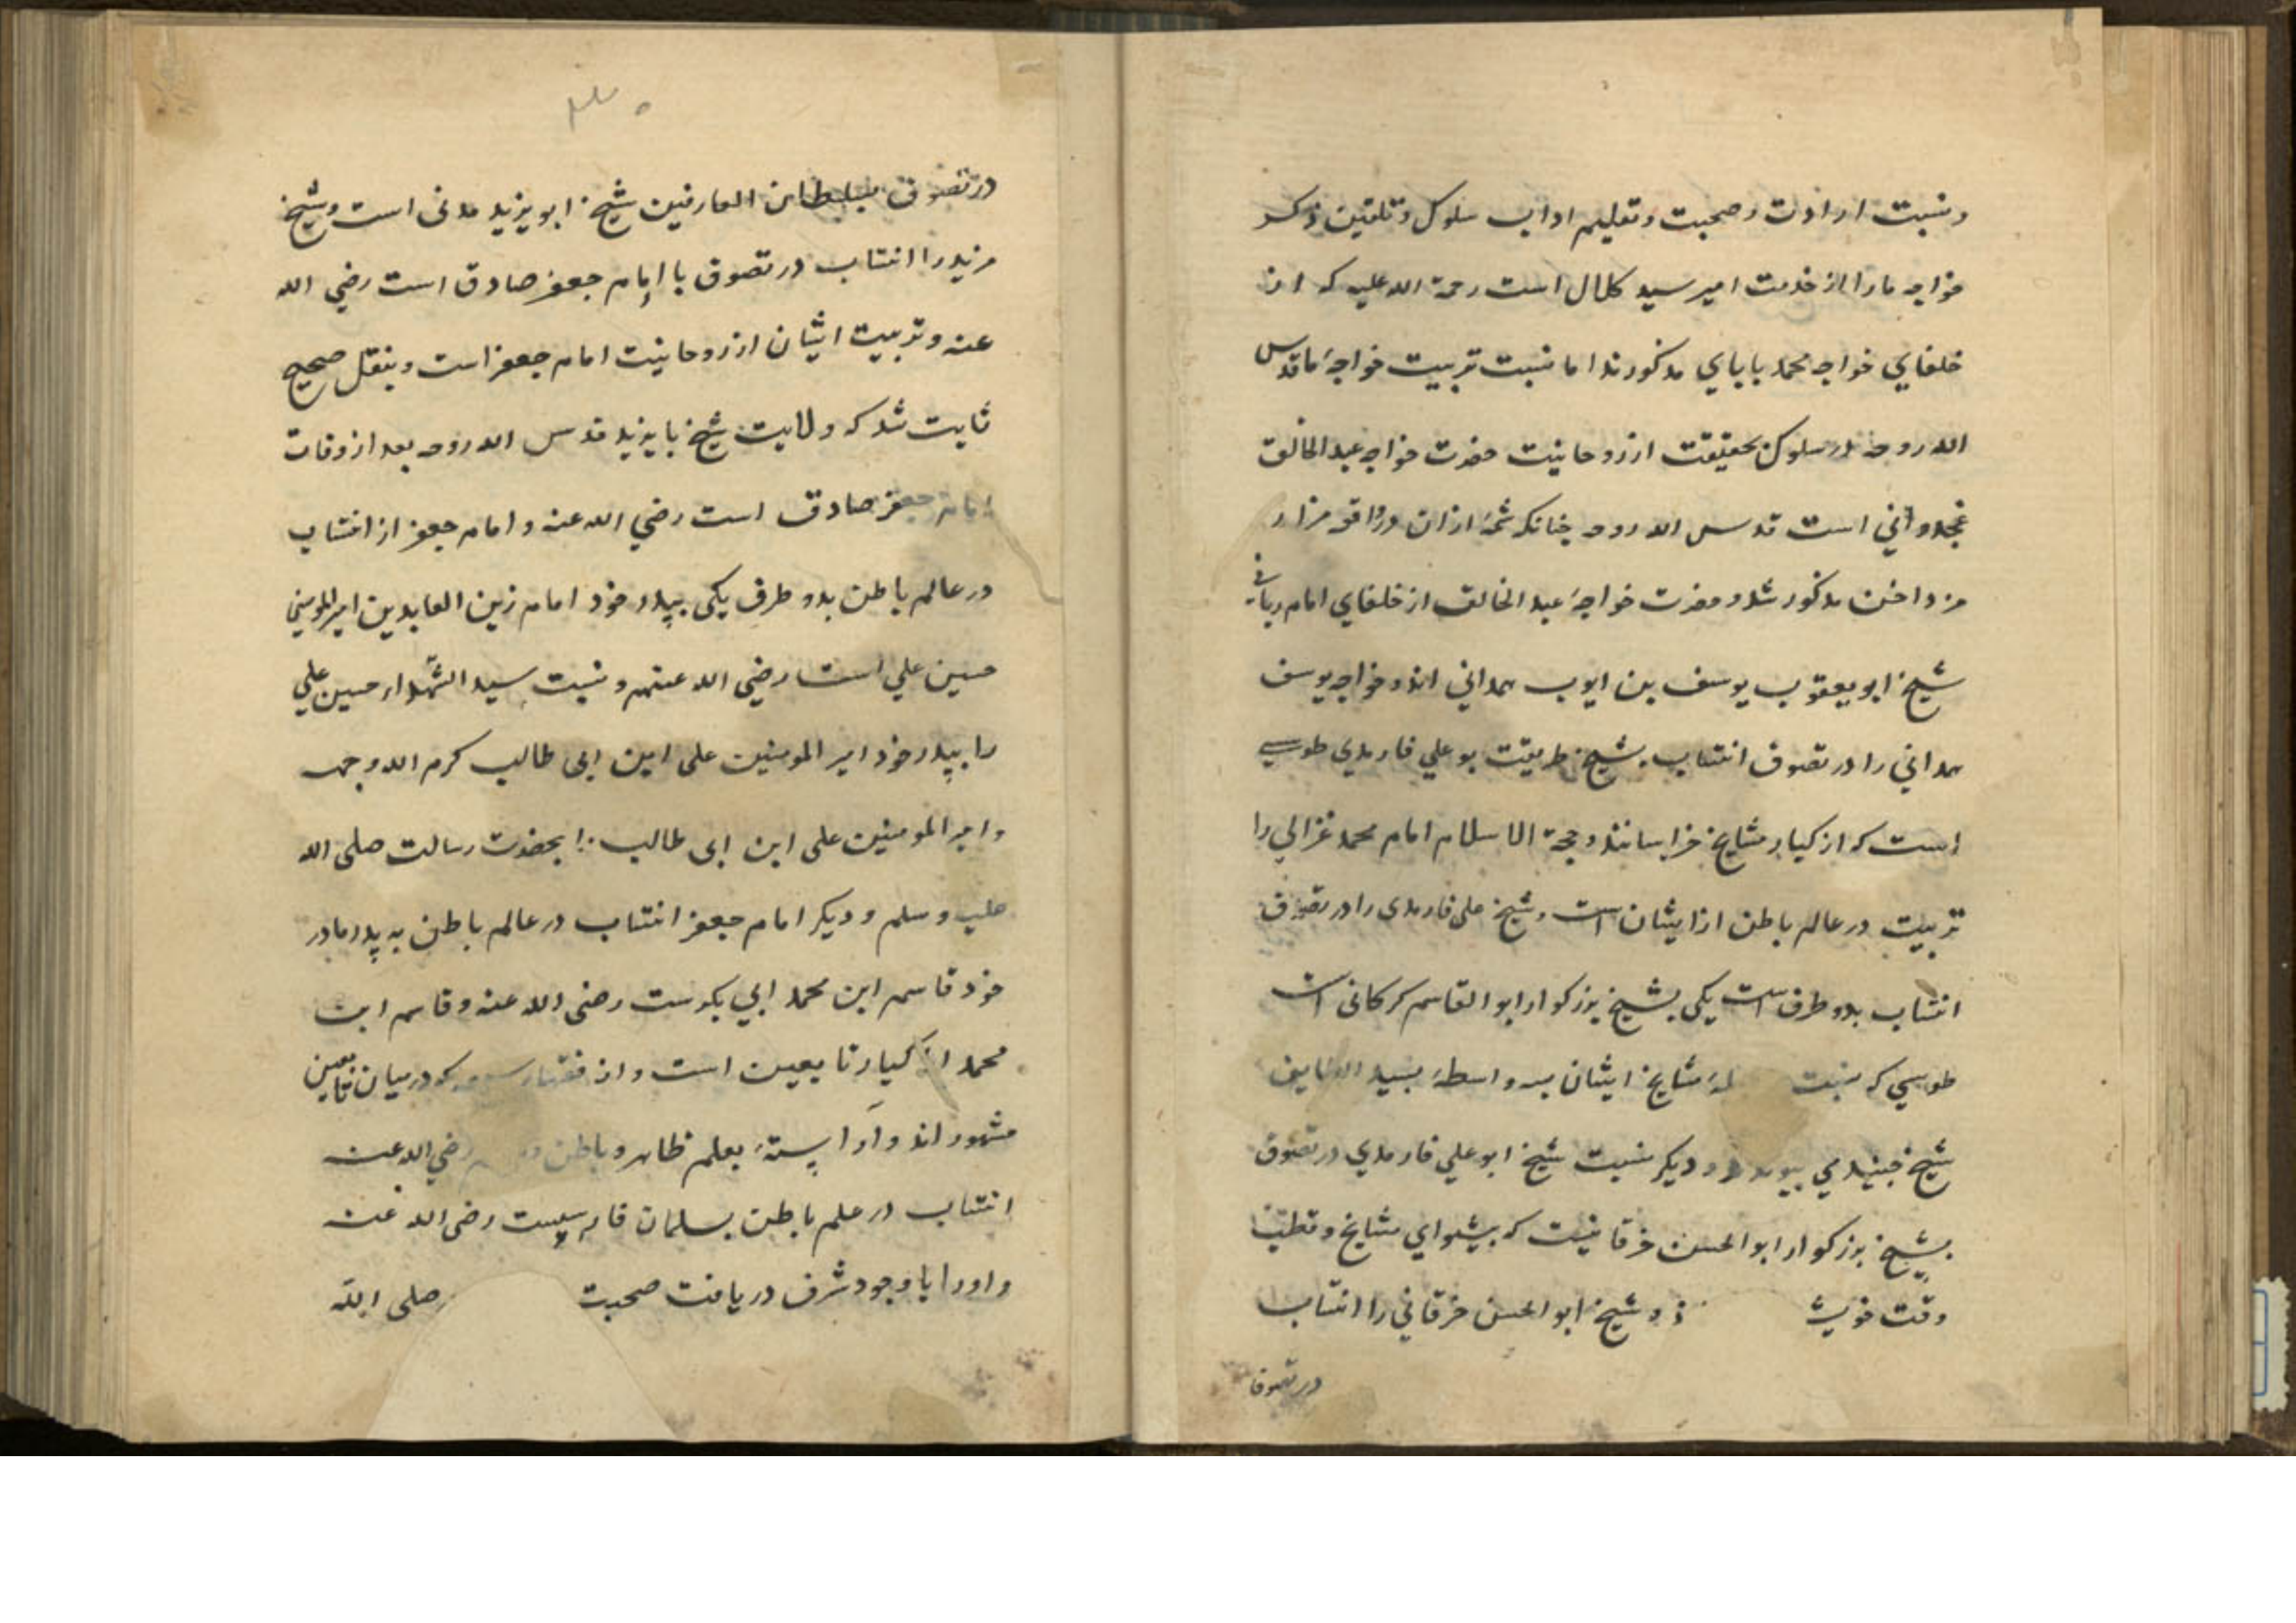 ونسبت ارادت وصحبت وتعلیم اداب سلوک وتلقین ذکر
خواجه ما را از خدمت امیر سید کلال است رحمة الله علیه که از
خلفاي خواجه محمد باباي مذکورند اما نسبت تربیت خواجهٔ ما قدس
الله روحه در سلوک بحقیقت از روحانیت حضرت خواجه عبدالخالق
غجدواني است قدس الله روحه چنانکه شمهٔ ازان در واقعه مزار
مزداخن مذکور شد و حضرت خواجهٔ عبد الخالق از خلفاي امام رباني
شیخ ابو یعقوب یوسف بن ایوب همداني اند و خواجه یوسف
همداني را در تصوف انتساب بشیخ طریقت بو علي فارمدي طوسي
است که از کبار مشایخ خراسانند و حجة الاسلام امام محمد غزالي را
تربیت در عالم باطن از ایشان است و شیخ علی فارمدی را در تصوف
انتساب بدو طرف است یکی بشیخ بزرکوار ابو القاسم کرکانی است
طوسي که نسبت مشایخ ایشان بسه واسطهٔ بسید الطایفه
شیخ جنید مي پیوندد و دیکر نسبت شیخ ابو علي فارمدي در تصوف
بشیخ بزرکوار ابو الحسن خرقانیست که پیشواي مشایخ و قطب
وقت خویش شیخ ابو الحسن خرقاني را انتساب
در تصوف
در تصوف بسلطان العارفین شیخ ابو یزید مدنی است و شیخ
مزید را انتساب در تصوف با امام جعفر صادق است رضي الله
عنه و تربیت ایشان از روحانیت امام جعفر است و بنقل صحیح
ثابت شد که ولایت شیخ با یزید قدس الله روحه بعد از وفات
امام جعفر صادق است رضي الله عنه و امام جعفر از انتساب
در عالم باطن بدو طرف یکی بپدر خود امام زین العابدین امیرالمومنین
حسین علي است رضي الله عنهم و نسبت سید الشهداء حسین علي
را بپدر خود امیر المومنین علی ابن ابی طالب کرم الله وجهه
و امیر المومنین علی ابن ابی طالب را بحضرت رسالت صلی الله
علیه وسلم و دیکر امام جعفر انتساب در عالم باطن به پدر مادر
خود قاسم ابن محمد ابي بکرست رضی الله عنه و قاسم ابن
محمد از کبار تابعین است و از فقهاء سبعه که درمیان تابعین
مشهور اند و آراستهٔ بعلم ظاهر و باطن رضي الله عنه
انتساب در علم باطن بسلمان فارسیست رضی الله عنه
و اورا با وجود شرف دریافت صحبت صلی الله